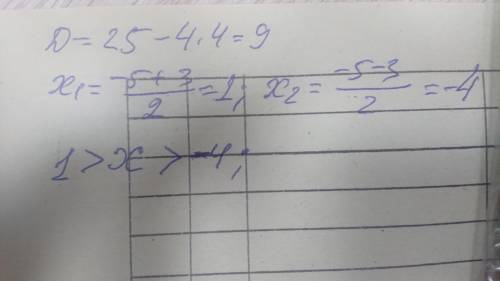 D = 25 - 4.4 = 9
x₁ = \frac{-5+3}{2} = 1; x₂ = \frac{-5-3}{2} = -4
1 > x > -4;